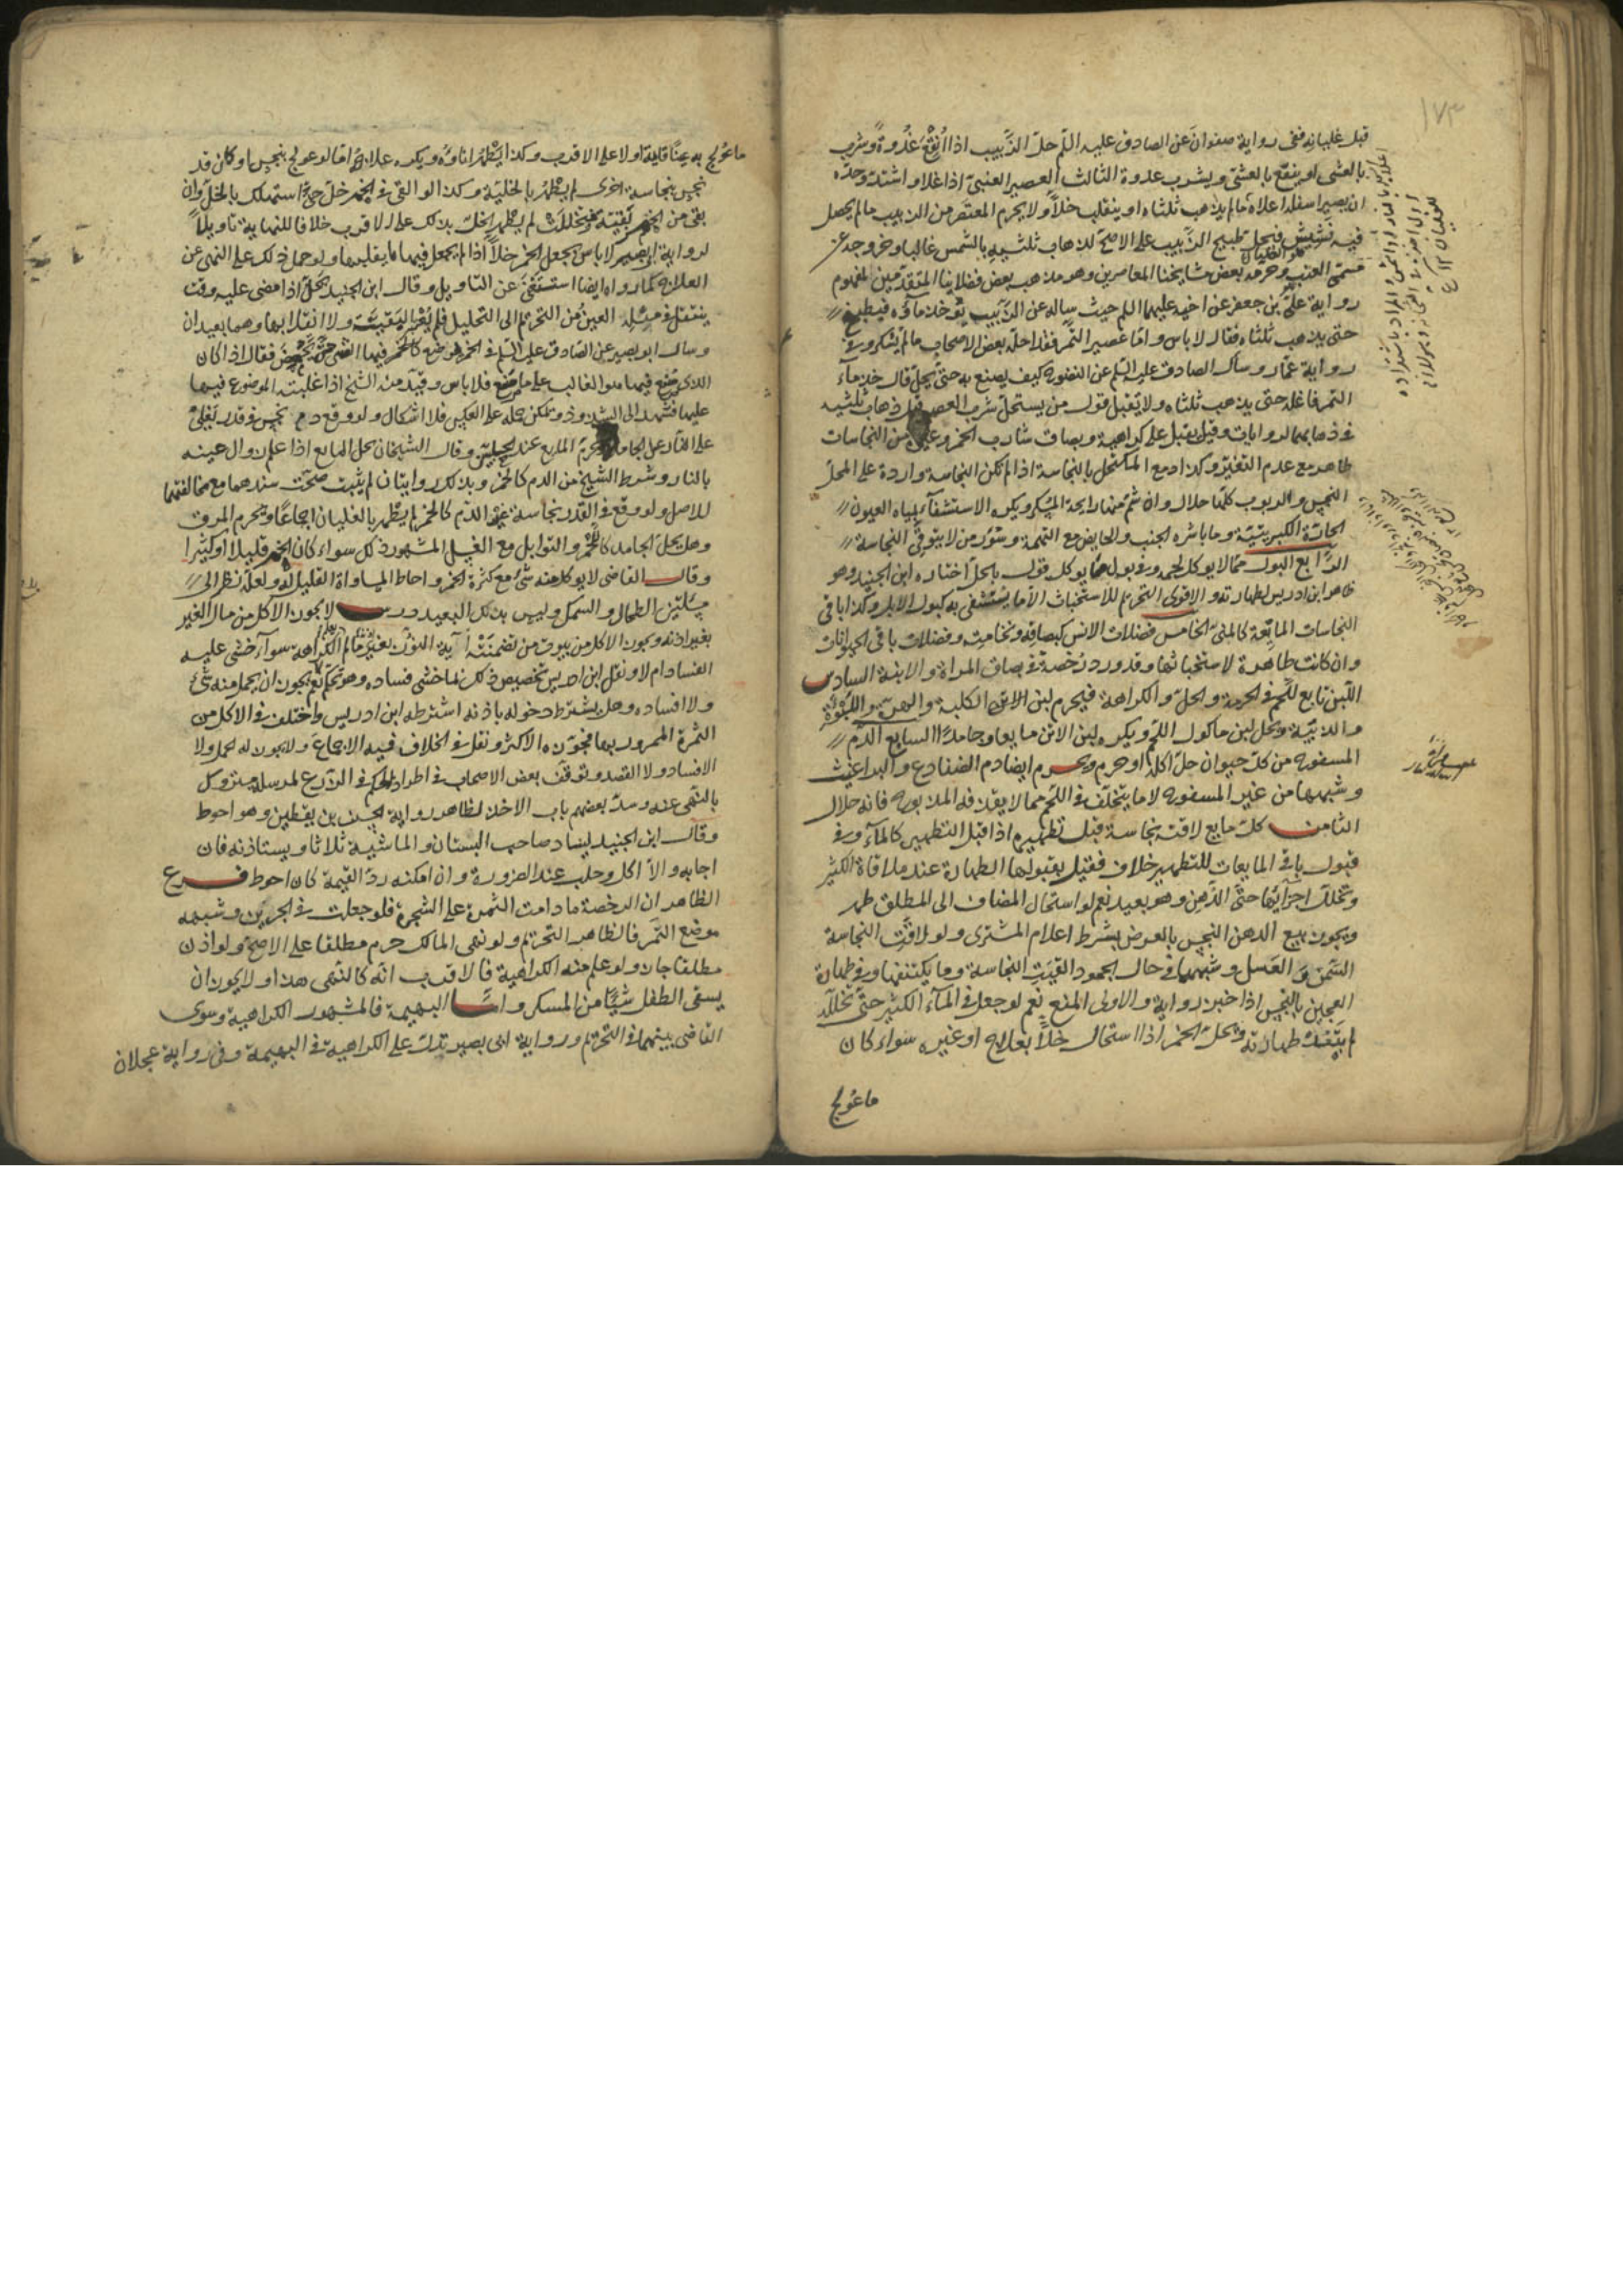 ١٧٣
قبل غليانه ففى رواية صفوان عن الصادق عليه السلم حل الزبيب اذا انقع غدوة وشرب
بالعشى او ينقع بالعشى ويشرب غدوة الثالث العصير العنبى اذا غلا واشتد وحده
ان يصير اسفله اعلاه ما لم يذهب ثلثاه او ينقلب خلا ولا يحرم المعتصر من الزبيب ما لم يحصل
فيه نشيش فيحل طبيخ الزبيب على الاصح لذهاب ثلثيه بالشمس غالبا وخروجه عن
مسمى العنب وحرمه بعض مشايخنا المعاصرين وهو مذهب بعض فضلاينا المتقدمين لمفهوم
رواية على بن جعفر عن اخيه عليهما السلم حيث ساله عن الزبيب يؤخذ ماؤه فيطبخ
حتى يذهب ثلثاه فقال لا باس واما عصير التمر فقد احله بعض الاصحاب ما لم يسكر وفى
رواية عمار وسال الصادق عليه السلم عن النضوح كيف يصنع به حتى يحل قال خذ ماء
التمر فاغله حتى يذهب ثلثاه ولا يقبل قول من يستحل شرب العصير قبل ذهاب ثلثيه
فى ذهابهما لروايات وقيل يقبل على كراهية وبصاق شارب الخمر وغيره من النجاسات
طاهر مع عدم التغير وكذا دمع المكتحل بالنجاسة اذا لم تكن النجاسة واردة على المحل
النجس والربوب كلها حلال وان شم منها رايحة المسكر ويكره الاستشفاء بمياه العيون
الحارة الكبريتية وما باشره الجنب والحايض مع التهمة وسؤر من لا يتوقى النجاسة
الرابع البول مما لا يوكل لحمه وفى بول ما يوكل قول بالحل اختاره ابن الجنيد وهو
ظاهر ابن ادريس لطهارته والاقوى التحريم للاستخباث الا ما يستشفى به كبول الابل وكذا باقى
النجاسات المايعة كالمنى الخامس فضلات الانس كبصاقه ونخامته وفضلات باقى الحيوانات
وان كانت طاهرة لاستخباثها وقد ورد رخصة فى بصاق المراة والابنة السادس
اللبن تابع للحم فى الحرمة والحل والكراهة فيحرم لبن الكلبة والهرة واللبؤة
والذيبة ويحل لبن ماكول اللحم ويكره لبن الاتن مايعا وجامدا السابع الدم
المسفوح من كل حيوان حل اكله او حرم ويحرم ايضا دم الضفادع والبراغيث
وشبهها من غير المسفوح لا ما يتخلف فى اللحم مما لا يقذفه المذبوح فانه حلال
الثامن كل مايع لاقته نجاسة قبل تطهيره اذا قبل التطهير كالماء وفى
قبول باقى المايعات للتطهير خلاف فقيل بقبولها الطهارة عند ملاقاة الكثير
وتخلل اجزائها حتى الدهن وهو بعيد نعم لو استحال المضاف الى المطلق طهر
ويجوز بيع الدهن النجس بالعرض بشرط اعلام المشترى ولو لاقت النجاسة
السمن والعسل وشبههما فى حال الجمود القيت النجاسة وما يكتنفها وفى طهارة
العجين بالنجس اذا خبز رواية والاولى المنع نعم لو جعل فى الماء الكثير حتى تخلله
لم يبعد طهارته ويحل الخمر اذا استحال خلا بعلاج او غيره سواء كان
ما عولج
ما عولج به عينا قايمة او لا على الاقرب وكذا يطهر اناؤه ويكره علاجه اما لو عولج بنجس او كان قد
نجس بنجاسة اخرى لم يطهر بالخلية وكذا لو القى فى الخمر خل حتى استهلك بالخل وان
بقى من الخمر بقية فتخللت لم يطهر الخل بذلك على الاقرب خلافا للنهاية تاويلا
لرواية ابى بصير لا باس بجعل الخمر خلا اذا لم يجعل فيها ما يقلبها ولو حمل ذلك على النهى عن
العلاج كما رواه ايضا استغنى عن التاويل وقال ابن الجنيد يحل اذا مضى عليه وقت
ينتقل فى مثله العين من التحريم الى التحليل فلم يعتبر البقية ولا انقلابها وهما بعيدان
وسال ابو بصير عن الصادق عليه السلم فى الخمر يصنع فيها الشى حتى تحمض فقال اذا كان
الذى صنع فيها هو الغالب على ما صنع فلا باس وقيده الشيخ اذا غلبته الموضوع فيها
عليها فنسبه الى الشذوذ ويمكن حمله على العكس فلا اشكال ولو وقع دم نجس فى قدر تغلى
على النار غسل الجامد وحرم المايع عند الحليين وقال الشيخان يحل المايع اذا علم زوال عينه
بالنار وشرط الشيخ من الدم كالخمر وبذلك روايتان لم يثبت صحة سندهما مع مخالفتهما
للاصل ولو وقع فى القدر نجاسة غير الدم كالخمر لم يطهر بالغليان اجماعا ويحرم المرق
وهل يحل الجامد كاللحم والتوابل مع الغسل المشهور ذلك سواء كان الخمر قليلا او كثيرا
وقال القاضى لا يوكل منه شئ مع كثرة الخمر واحتاط بمساواة القليل له ولعله نظر الى
مسئلتى الطحال والسمك وليس بذلك البعيد درس لا يجوز الاكل من مال الغير
بغير اذنه ويجوز الاكل من بيوت من تضمنته آية النور بغير اذنه ما لم يعلم الكراهة سواء خشى عليه
الفساد ام لا ونقل ابن ادريس تخصيص ذلك بما خشى فساده وهو تحكم نعم لا يجوز ان يحمل منه شئ
ولا افساده وهل يشترط دخوله باذنه اشترطه ابن ادريس واختلف فى الاكل من
الثمرة الممرور بها فجوزه الاكثر ونقل فى الخلاف فيه الاجماع ولا يجوز له الحمل ولا
الافساد ولا القصد وتوقف بعض الاصحاب فى اطراد الحكم فى الزرع لمرسلة مروك
بالنهى عنه وسد بعضهم باب الاخذ لظاهر رواية الحسن بن يقطين وهو احوط
وقال ابن الجنيد لينادِ صاحب البستان والماشية ثلاثا ويستاذنه فان
اجابه والا اكل وحلب عند الضرورة وان امكنه رد القيمة كان احوط فـــرع
الظاهر ان الرخصة ما دامت الثمرة على الشجرة فلو جعلت فى الجرين وشبهه
موضع التمر فالظاهر التحريم ولو نهى المالك حرم مطلقا على الاصح ولو اذن
مطلقا جاز ولو علم منه الكراهية فالاقرب انه كالنهى هذا ولا يجوز ان
يسقى الطفل شيئا من المسكر واما البهيمة فالمشهور الكراهية وسوى
القاضى بينهما فى التحريم ورواية ابى بصير تدل على الكراهية فى البهيمة وفى رواية عجلان